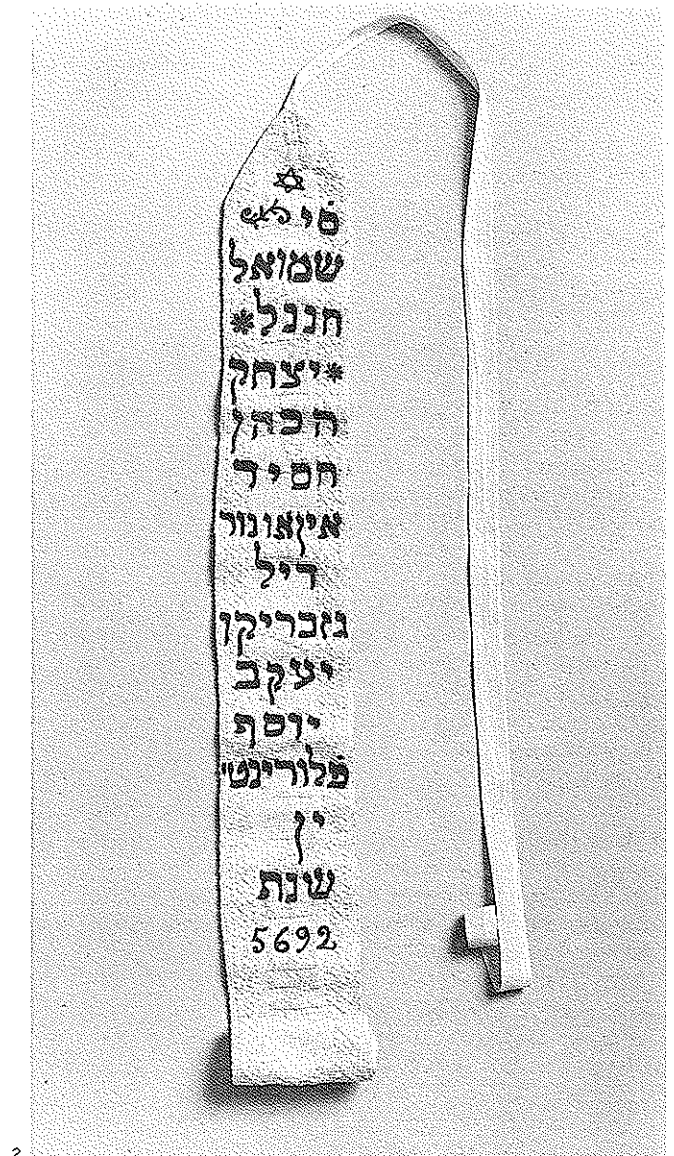 סי
שמואל
חננל*
*יצחק
הכהן
חסיד
אין אונור
דיל
גזבריקו
יעקב
יוסף
פלורינטי
ין
שנת
5692